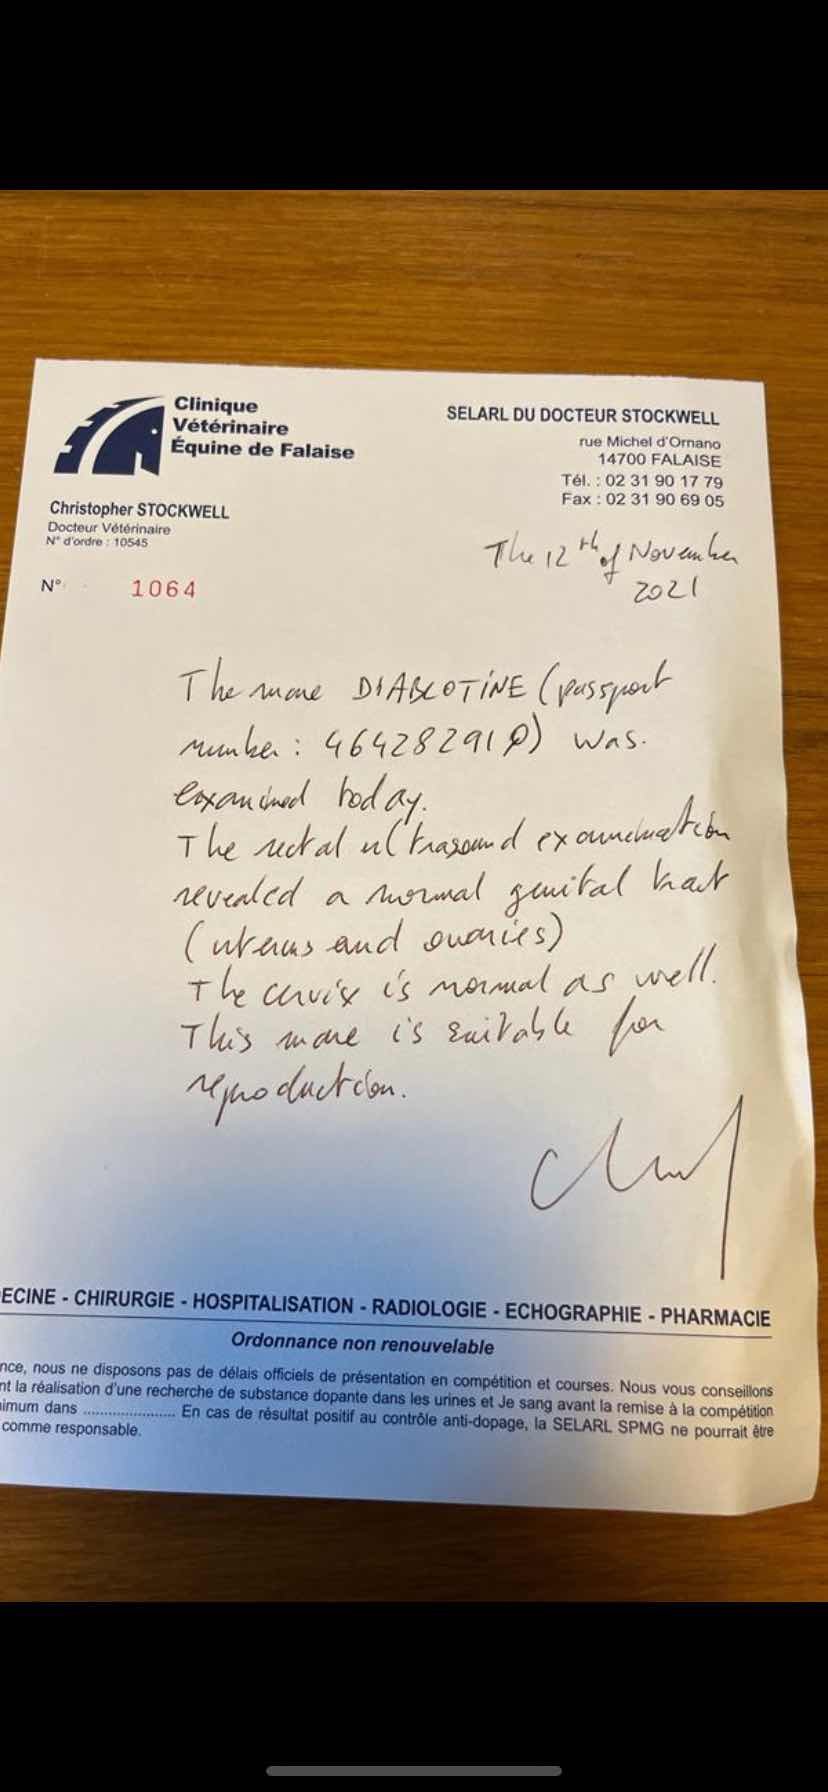 Clinique
Vétérinaire
Équine de Falaise
SELARL DU DOCTEUR STOCKWELL
rue Michel d'Ornano
14700 FALAISE
Tél. : 02 31 90 17 79
Fax : 02 31 90 69 05
Christopher STOCKWELL
Docteur Vétérinaire
N° d'ordre : 10545
The 12th of November
2021
N° 1064
The mare DIABLOTINE (passport
number : 46428291) was.
examined today.
The rectal ultrasound examination
revealed a normal genital tract
(uterus and ovaries)
The cervix is normal as well.
This mare is suitable for
reproduction.
ECINE - CHIRURGIE - HOSPITALISATION - RADIOLOGIE - ECHOGRAPHIE - PHARMACIE
Ordonnance non renouvelable
nce, nous ne disposons pas de délais officiels de présentation en compétition et courses. Nous vous conseillons
nt la réalisation d'une recherche de substance dopante dans les urines et le sang avant la remise à la compétition
nimum dans ...................... En cas de résultat positif au contrôle anti-dopage, la SELARL SPMG ne pourrait être
comme responsable.